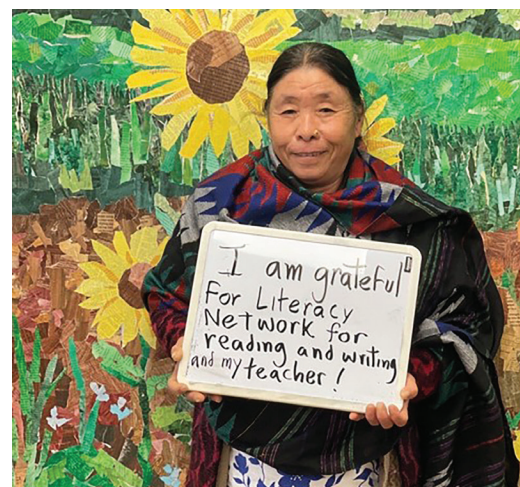 I am grateful
For Literacy
Network for
reading and writing
and my teacher!